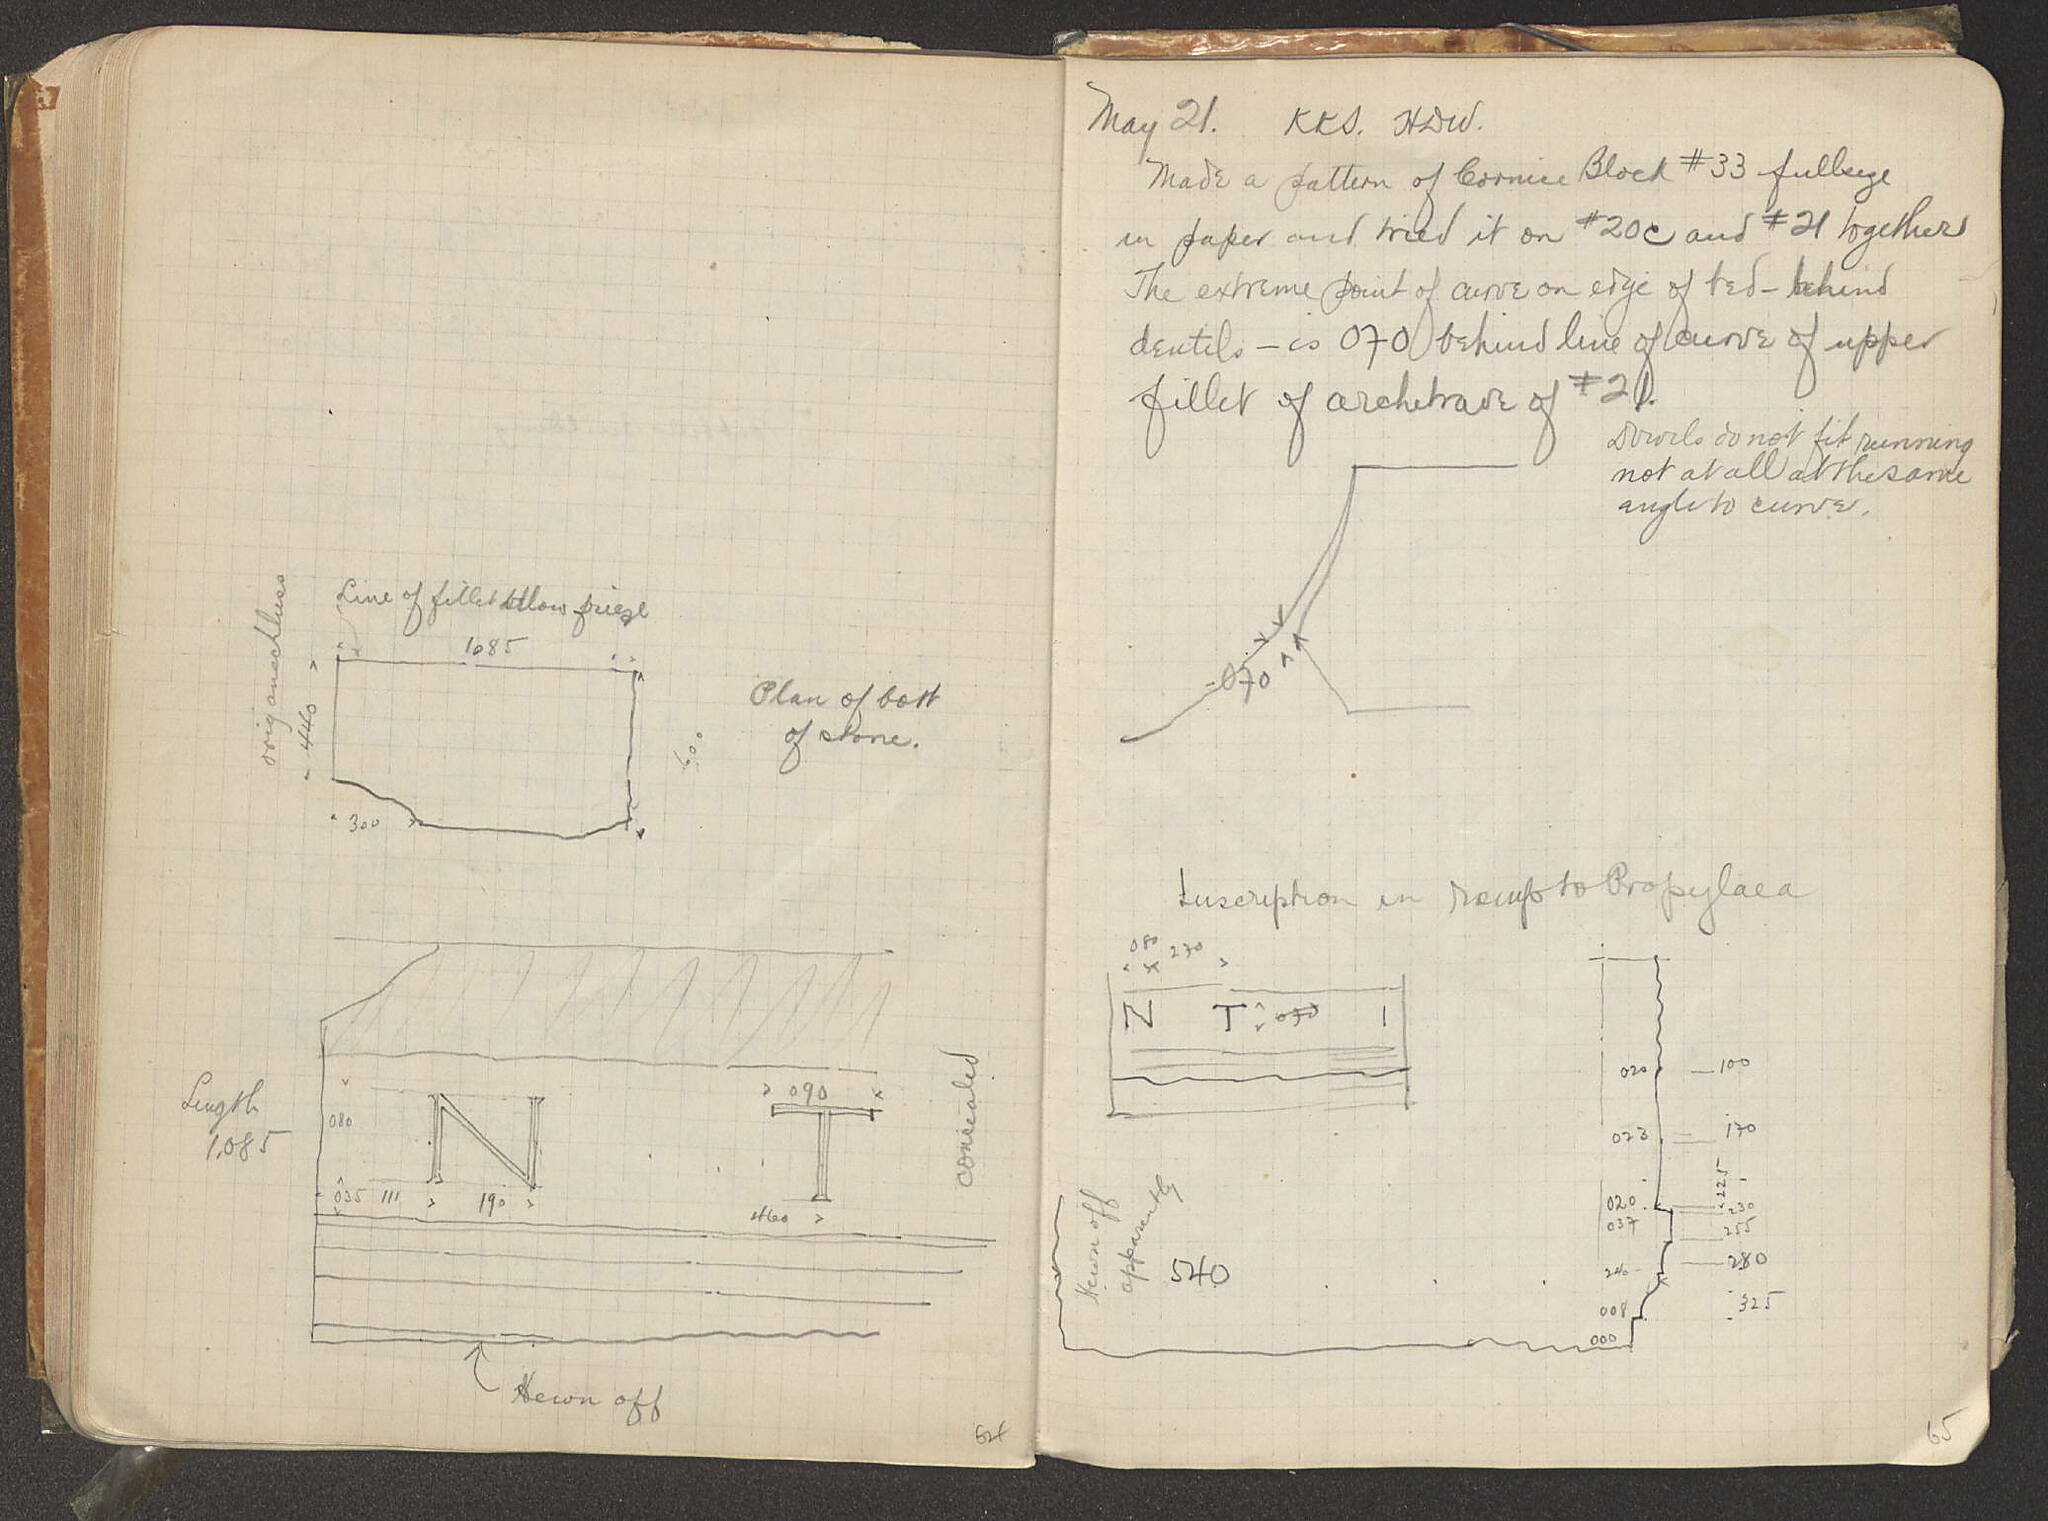 Line of fillet below frieze
1.085
440
300
600
Plan of bott
of stone.
Length
1.085
080
035 111
190
090
460
N T
concealed
Hewn off
64
May 21. KKS. HDW.
Made a pattern of Cornice Block #33 fullsize
in paper and tried it on #20c and #21 together
The extreme point of curve on edge of bed - behind
dentils - is 070 behind line of curve of upper
fillet of archetrave of #21.
Dowels do not fit running
not at all at the same
angle to curve.
.070
Inscription in ramp to Propylaea
080 270
N T 070 I
Hewn off
apparently
540
020 100
023 170
225
020 230
037 255
240 280
008 325
000
65